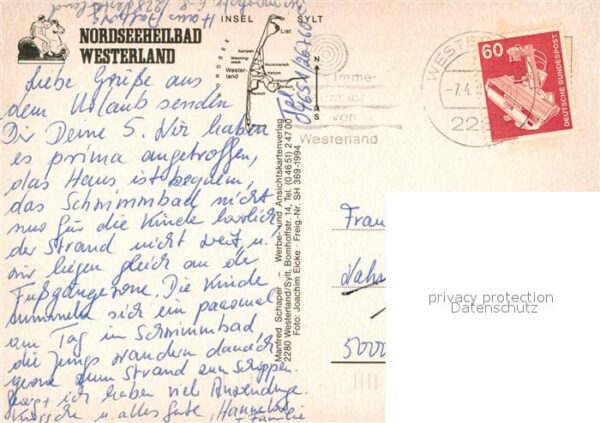 Haus
2280 Westerland
NORDSEEHEILBAD
WESTERLAND
INSEL SYLT
List
Kampen
Wenning-
stedt
Wester-
land
Munkmarsch
Keitum
Rantum
N
S
NORDSEE
Tel.
04651/
Liebe Grüße aus
dem Urlaub senden
Dir Deine 5. Wir haben
es prima angetroffen,
das Haus ist bequem,
das Schwimmbad nicht
nur für die Kinder herrlich
der Strand nicht weit, u.
wir liegen gleich an der
Fußgängerzone. Die Kinder
tummeln sich ein paarmal
am Tag im Schwimmbad
die Jungs wandern danach
gerne zum Strand zum Schippen.
ich haben viel
u. alles gute, Hannelore
+ Familie
Manfred Schaper – Werbe- und Ansichtskartenverlag
2280 Westerland/Sylt, Bomhoffstr. 14, Tel. (0 46 51) 2 47 00
Foto: Joachim Eicke · Freig.-Nr. SH 369-1994
immer
vor
Westerland
WESTER
-7.4.
228
60
DEUTSCHE BUNDESPOST
Frau
5000
privacy protection
Datenschutz